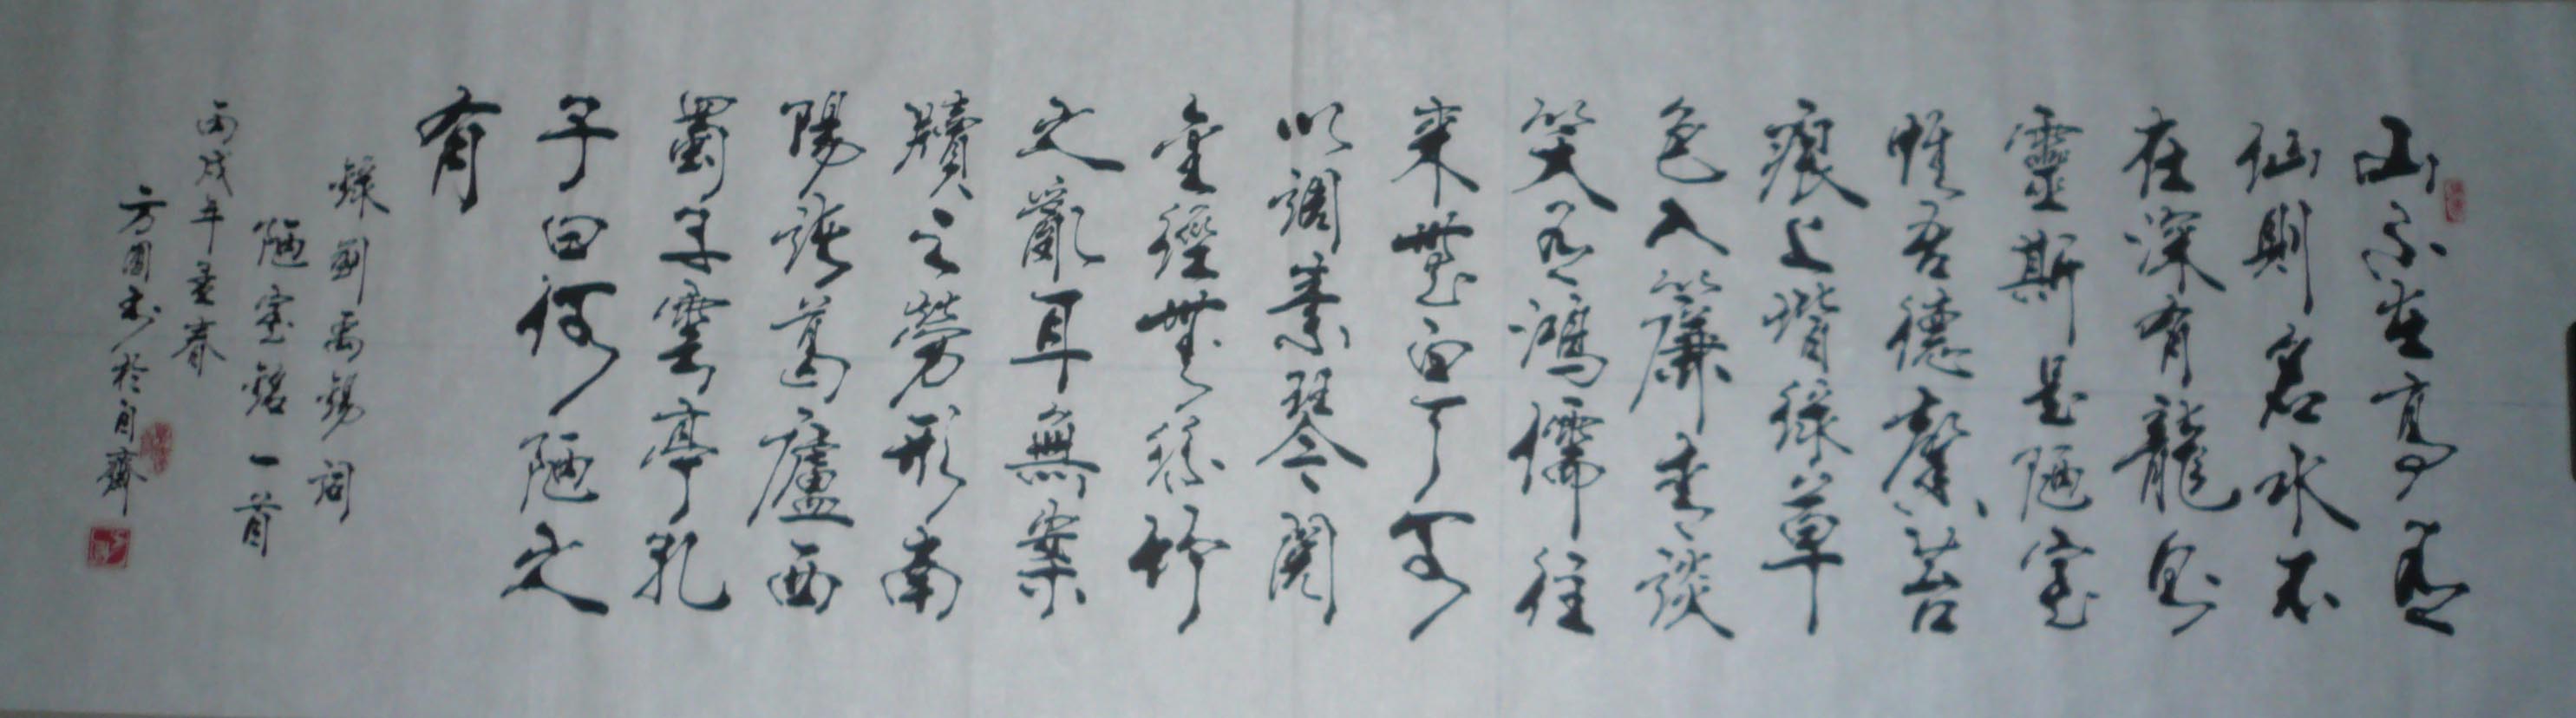 山不在高有
仙則名水不
在深有龍則
靈斯是陋室
惟吾德馨苔
痕上階綠草
色入簾青談
笑有鴻儒往
來無白丁可
以調素琴閱
金經無絲竹
之亂耳無案
牘之勞形南
陽諸葛廬西
蜀子雲亭孔
子曰何陋之
有
錄劉禹錫詞
陋室銘一首
丙戌年孟春
方圓書於自齋